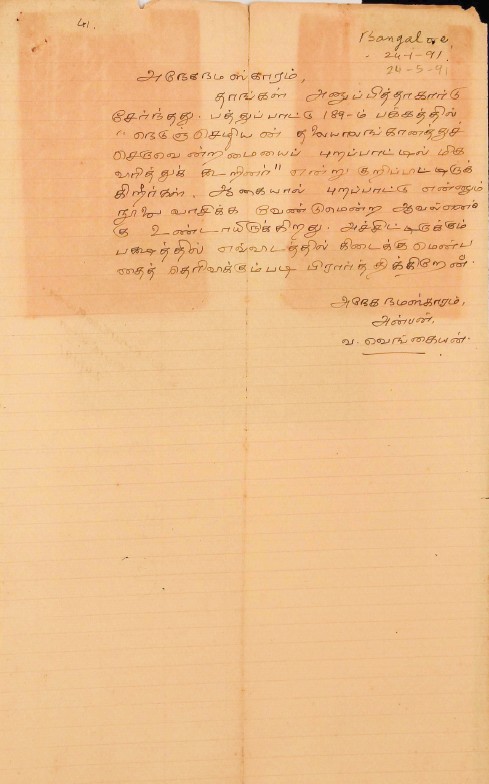 41.
Bangalore,
24-1-91.
24-5-91
அநேகநமஸ்காரம்,
தாங்கள் அனுப்பித்தகார்டு
சேர்ந்தது. பத்துப்பாட்டு 189-ம் பக்கத்தில்
"நெடுஞ்செழியன் தலையாலங்கானத்துச்
செருவென்றமையைப் புறப்பாட்டில் மிக
வரித்துக் கூறினார்" என்று குறிப்பிட்டிருக்
கிறீர்கள். ஆகையால் புறப்பாட்டு என்னும்
நூலை வாசிக்க வேண்டுமென்ற ஆவல் எனக்
கு உண்டாயிருக்கிறது. அச்சிட்டிருக்கும்
பக்ஷத்தில் எவ்விடத்தில் கிடைக்குமென்ப
தைத் தெரிவிக்கும்படி பிரார்த்திக்கிறேன்.
அநேக நமஸ்காரம்,
அன்பன்,
வ. வெங்கையன்.